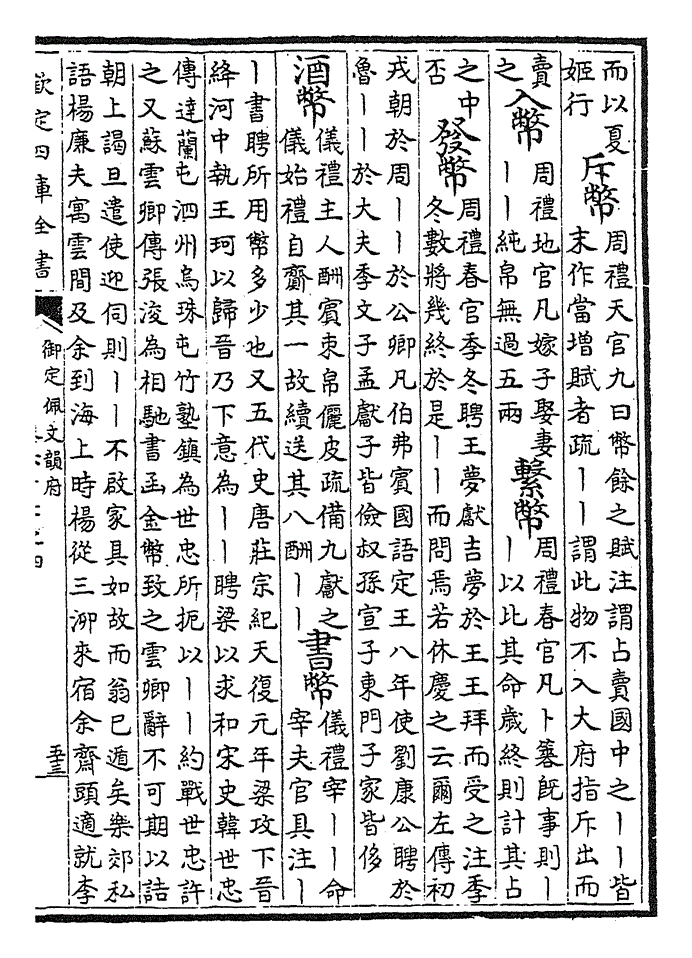 而以夏
姬行
斥幣
周禮天官九曰幣餘之賦注謂占賣國中之丨丨皆
末作當增賦者疏丨丨謂此物不入大府指斥出而
賣
之
入幣
周禮地官凡嫁子娶妻
丨丨純帛無過五兩
繫幣
周禮春官凡卜簭旣事則丨
丨以比其命歲終則計其占
之中
否
發幣
周禮春官季冬聘王夢獻吉夢於王王拜而受之注季
冬數將幾終於是丨丨而問焉若休慶之云爾左傳初
戎朝於周丨丨於公卿凡伯弗賓國語定王八年使劉康公聘於
魯丨丨於大夫季文子孟獻子皆儉叔孫宣子東門子家皆侈
酒幣
儀禮主人酬賓束帛儷皮疏備九獻之
儀始禮自齎其一故續送其八酬丨丨
書幣
儀禮宰丨丨命
宰夫官具注丨
丨書聘所用幣多少也又五代史唐莊宗紀天復元年梁攻下晉
絳河中執王珂以歸晉乃下意為丨丨聘梁以求和宋史韓世忠
傳達蘭屯泗州烏珠屯竹塾鎮為世忠所扼以丨丨約戰世忠許
之又蘇雲卿傳張浚為相馳書函金幣致之雲卿辭不可期以詰
朝上謁旦遣使迎伺則丨丨不啟家具如故而翁已遁矣樂郊私
語楊廉夫寓雲間及余到海上時楊從三泖來宿余齋頭適就李
欽定四庫全書
御定佩文韻府